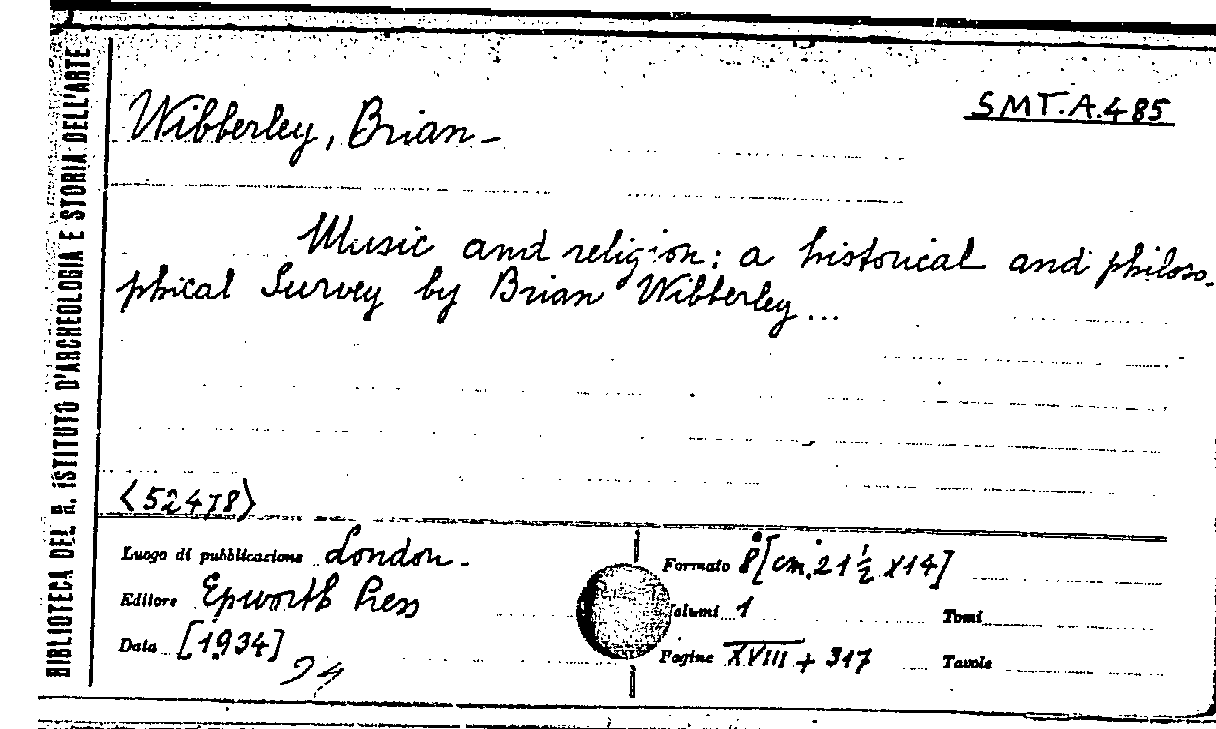 BIBLIOTECA DEL R. ISTITUTO D'ARCHEOLOGIA E STORIA DELL'ARTE
SMT.A.485
Wibberley, Brian-
Music and religion: a historical and philoso-
phical Survey by Brian Wibberley...
<52478>
Luogo di pubblicazione London-
Editore Epworth Press
Data [1934]
Formato 8° [cm. 21 ½ x14]
Volumi 1 Tomi
Pagine XVIII + 317 Tavole